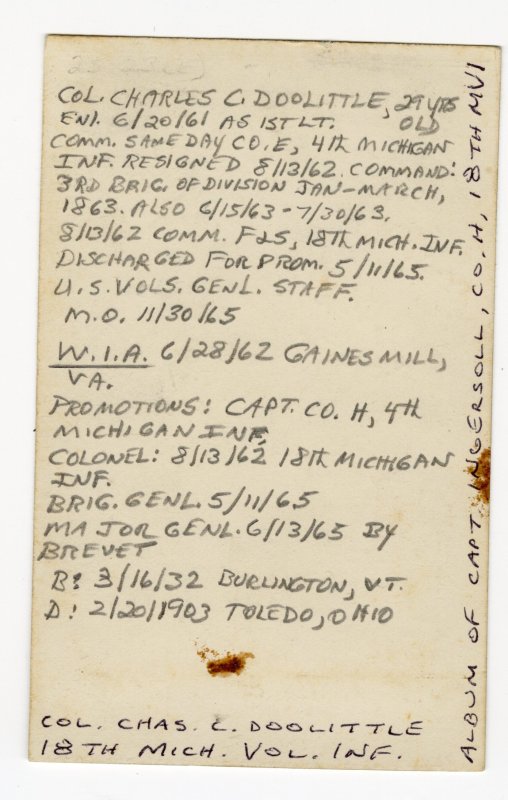 COL. CHARLES C. DOOLITTLE, 29 YRS
OLD
ENL. 6/20/61 AS 1ST LT.
COMM. SAME DAY CO. E, 4th MICHIGAN
INF. RESIGNED 8/13/62. COMMAND:
3RD BRIG. OF DIVISION JAN-MARCH,
1863. ALSO 6/15/63-7/30/63.
8/13/62 COMM. F&S, 18th MICH. INF.
DISCHARGED FOR PROM. 5/11/65.
U.S. VOLS. GENL. STAFF.
M.O. 11/30/65
W.I.A. 6/28/62 GAINES MILL,
VA.
PROMOTIONS: CAPT. CO. H, 4th
MICHIGAN INF.
COLONEL: 8/13/62 18th MICHIGAN
INF.
BRIG. GENL. 5/11/65
MAJOR GENL. 6/13/65 BY
BREVET
B: 3/16/32 BURLINGTON, VT.
D: 2/20/1903 TOLEDO, OHIO
COL. CHAS. C. DOOLITTLE
18TH MICH. VOL. INF.
ALBUM OF CAPT. INGERSOLL, CO. H, 18TH MVI